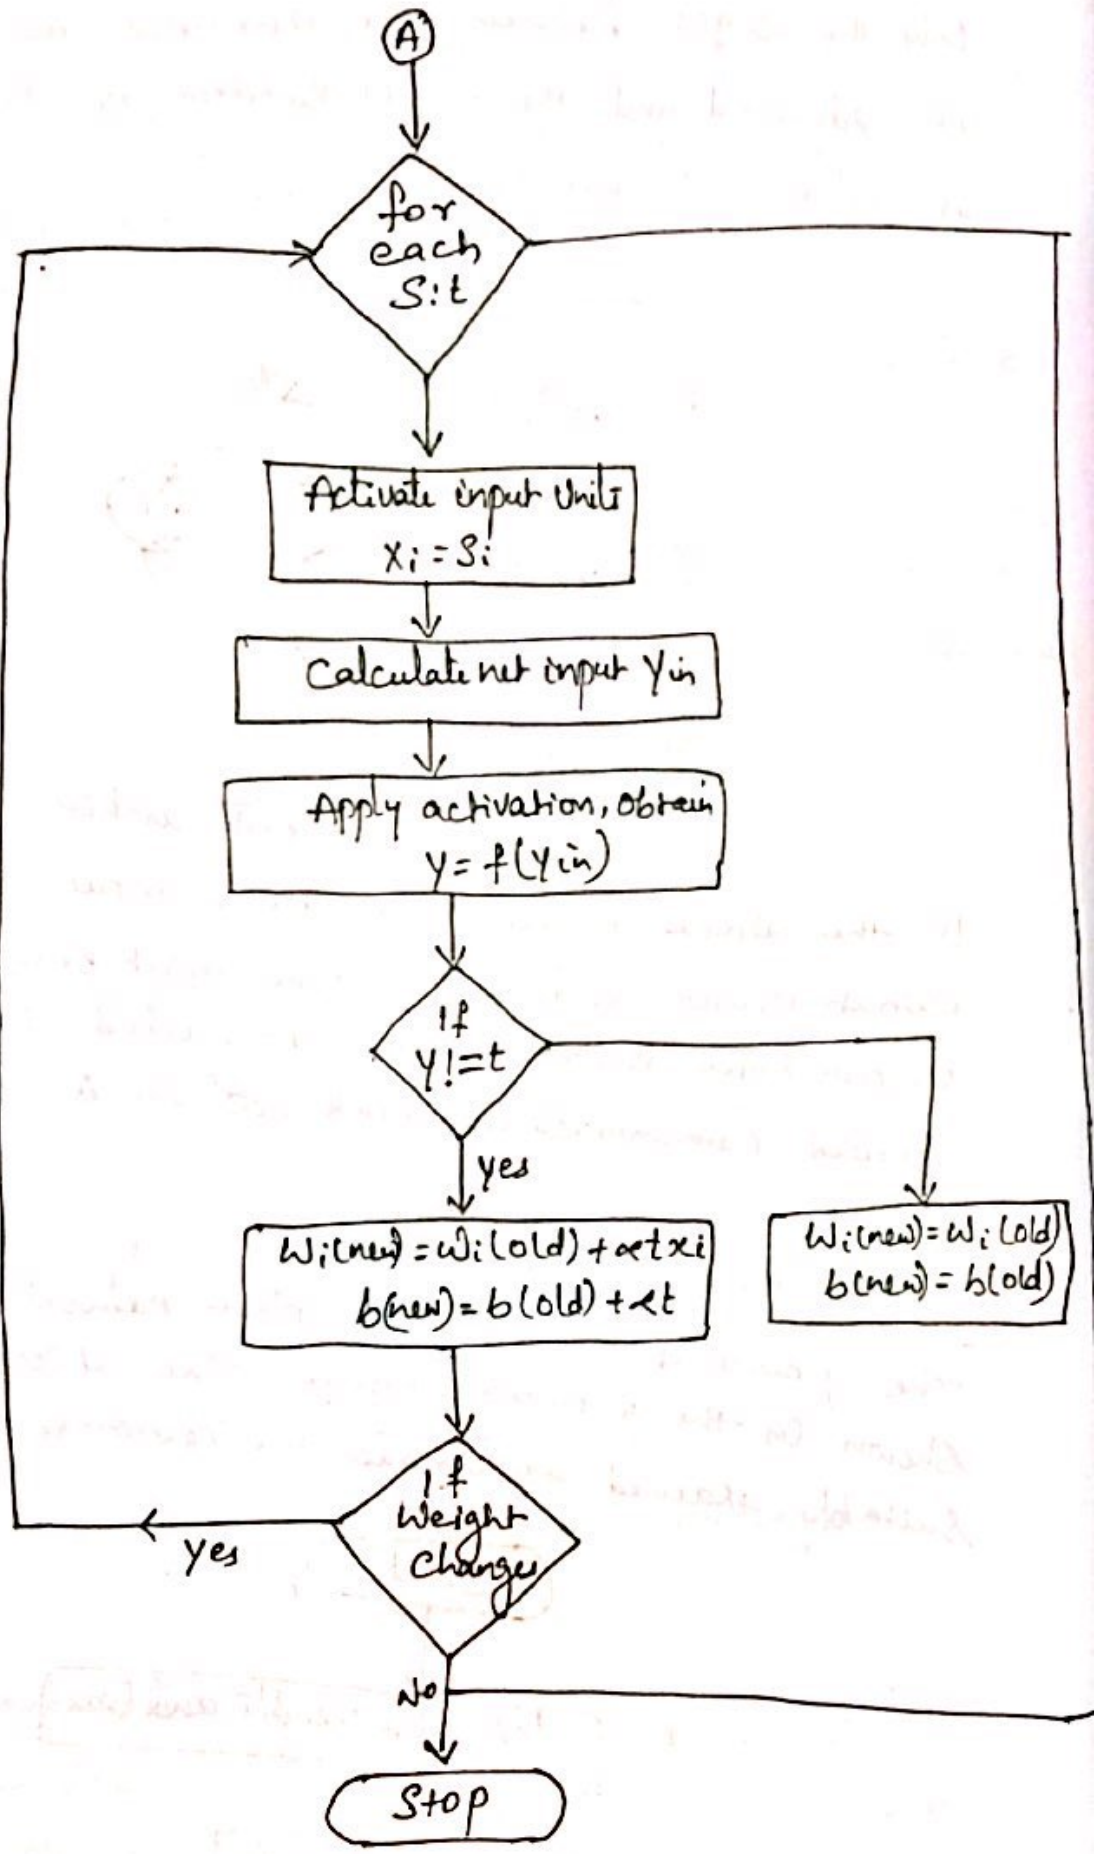 A
for
each
S:t
Activate input Units
xi = Si
Calculate net input Yin
Apply activation, obtain
y = f(yin)
If
y!=t
yes
Wi(new) = Wi(old) + αtxi
b(new) = b(old) + αt
Wi(new) = Wi(old)
b(new) = b(old)
If
Weight
Changes
yes
No
Stop